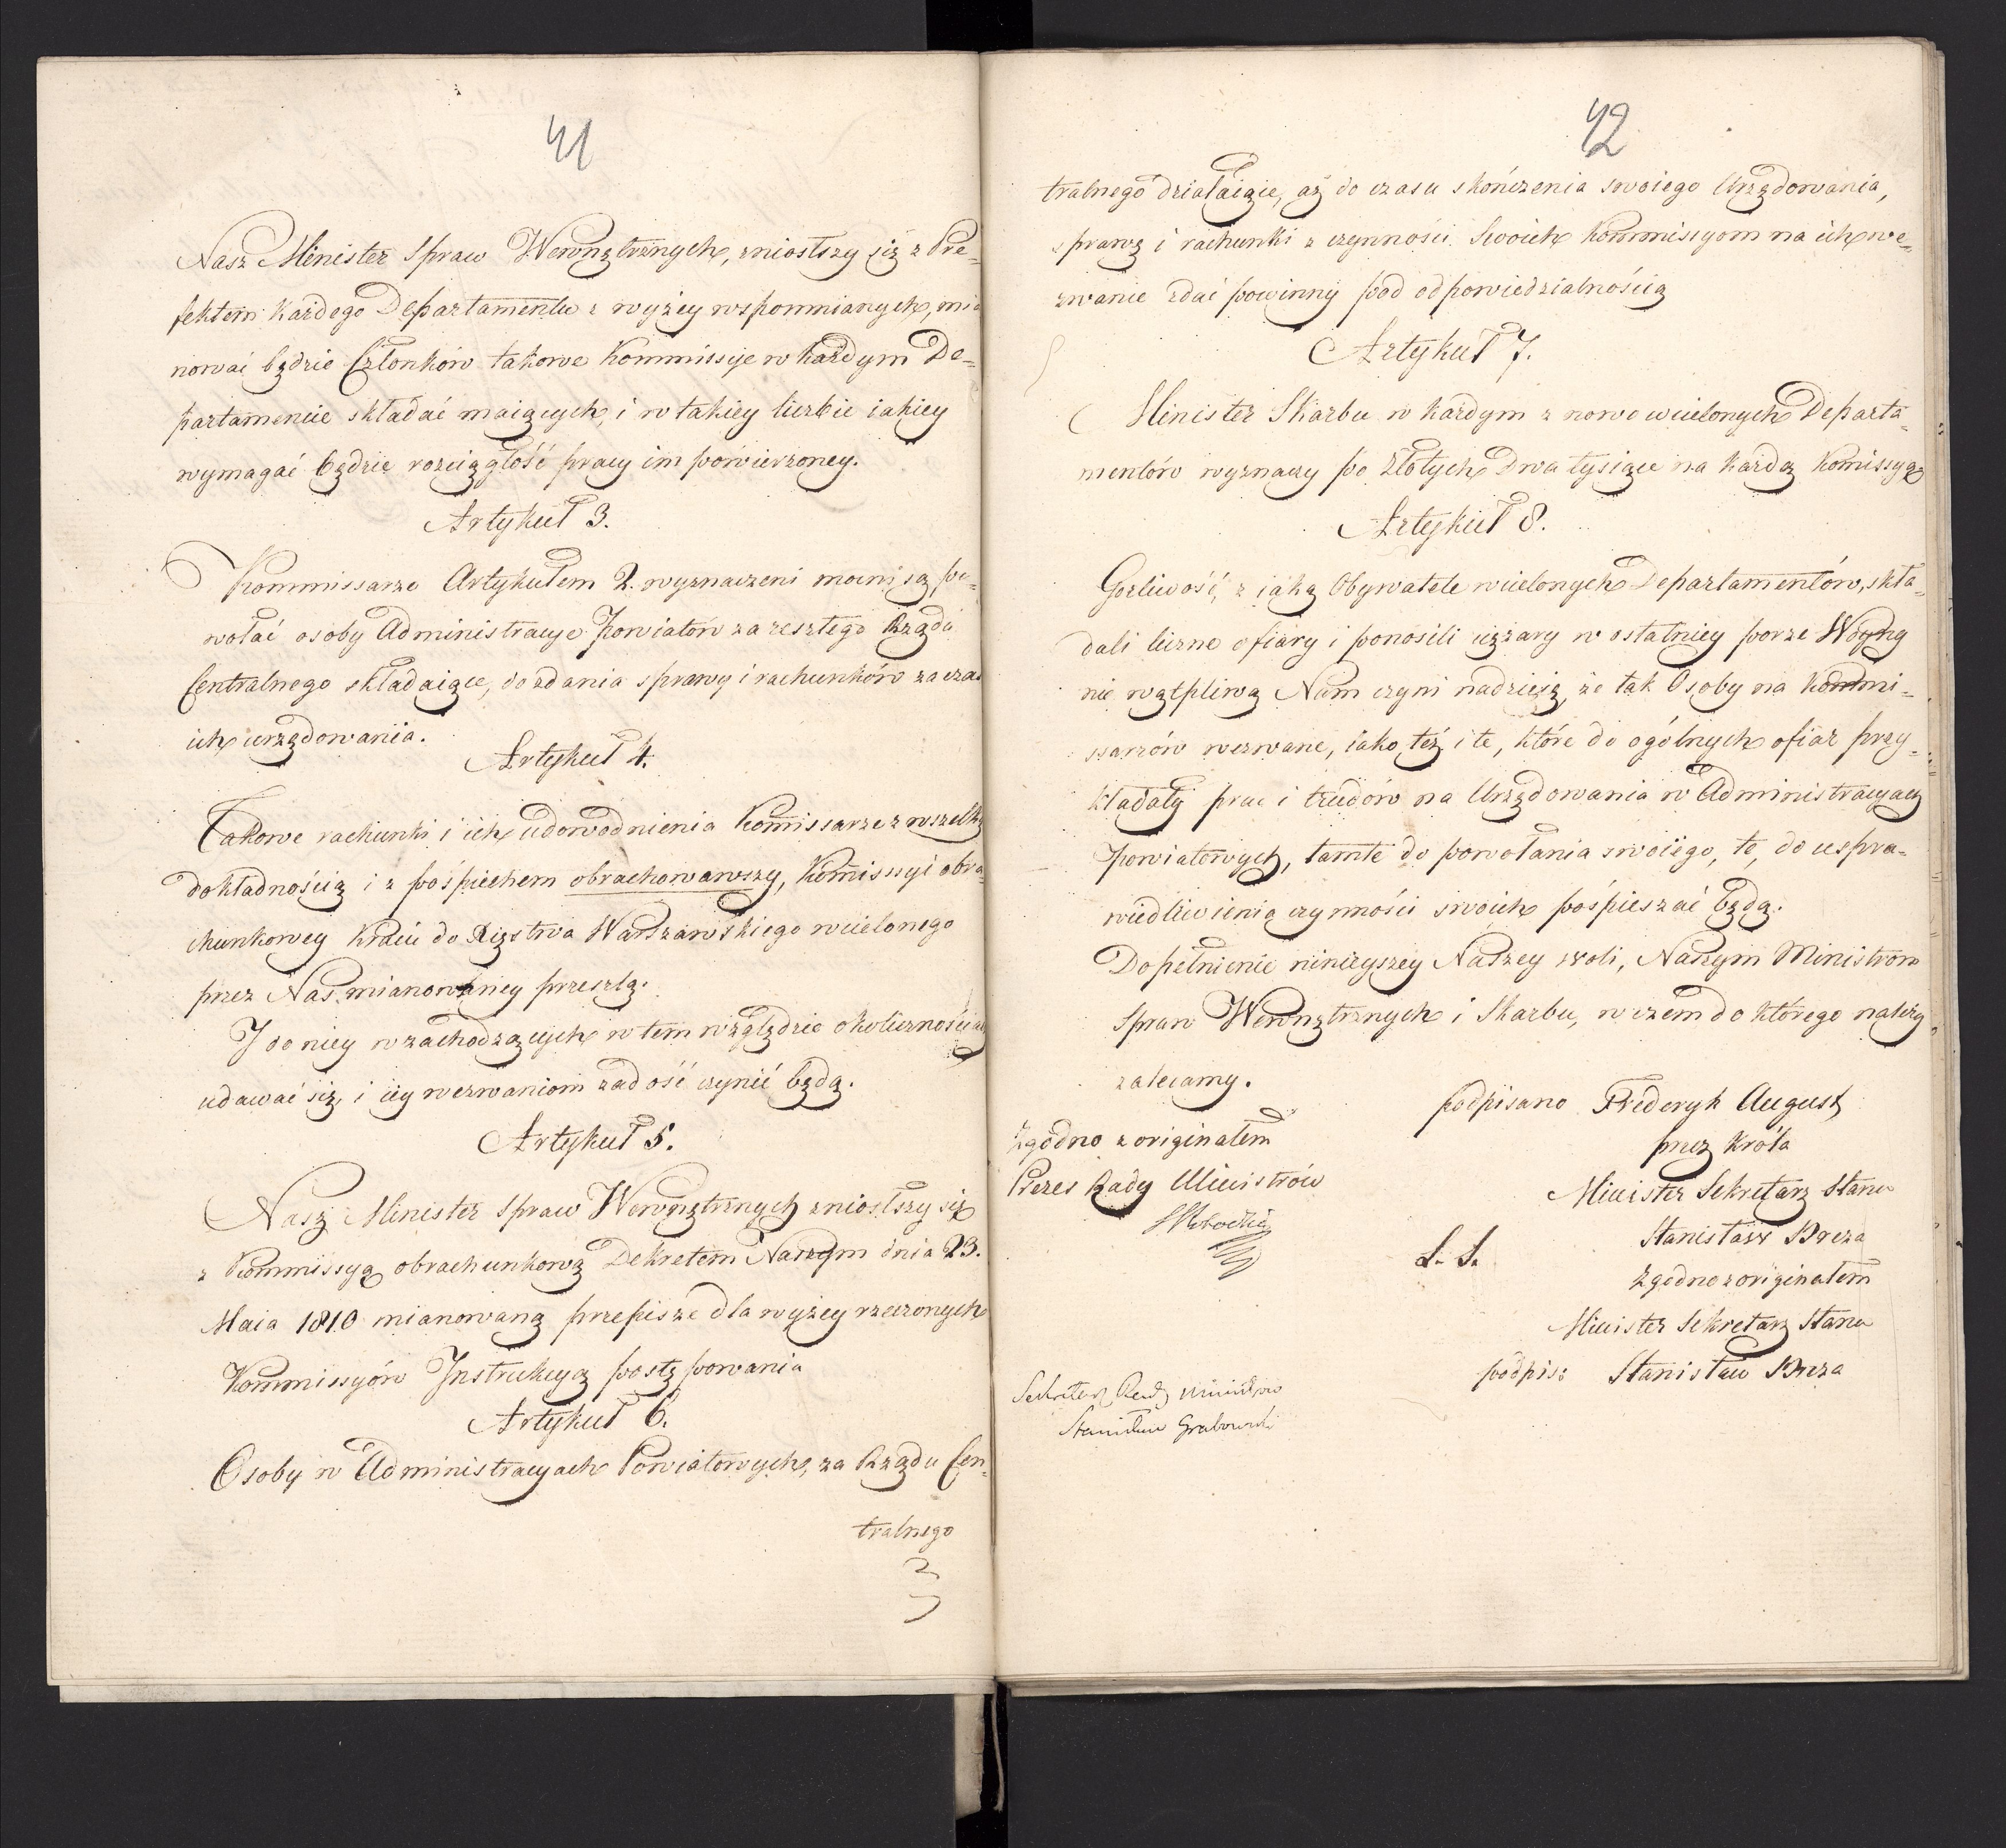 41
Nasz Minister Spraw Wewnętrznych, zniosłszy się z Pre-
fektem każdego Departamentu z wyżey wspomnianych, mia
nować będzie Członków takowe Kommissye w każdym De-
partamencie składać maiących, i w takiey liczbie iakiey
wymagać będzie rozciągłość pracy im powierzoney.
Artykuł 3.
Kommissarze Artykułem 2. wyznaczeni mocni są po-
wołać osoby Administracye Powiatów za zeszłego Rządu
Centralnego składaiące, do zdania sprawy i rachunków za czas
ich urzędowania.
Artykuł 4.
Takowe rachunki i ich udowodnienia Komissarze z wszelką
dokładnością i z pośpiechem obrachowawszy, Komissyi obra-
chunkowey Kraiu do Xięstwa Warszawskiego wcielonego
przez Nas mianowaney przeszlą.
I do niey w zachodzących w tem względzie okolicznościach
udawać się, i iey wezwaniom zadość czynić będą.
Artykuł 5.
Nasz Minister Spraw Wewnętrznych zniosłszy się
z Kommissyą obrachunkową Dekretem Naszym dnia 23.
Maia 1810 mianowaną przepisze dla wyżey rzeczonych
Kommissyów Instrukcyą postępowania
Artykuł 6.
Osoby w Administracyach Powiatowych, za Rządu Cen-
tralnego
42
tralnego działaiące, aż do czasu skończenia swoiego Urzędowania,
sprawę i rachunki z czynności Swoich Kommissyom na ich we-
zwanie zdać powinny pod odpowiedzialnością
Artykuł 7.
Minister Skarbu w każdym z nowo wcielonych Departa-
mentów wyznaczy po Złotych Dwa tysiące na każdą Komissyą
Artykuł 8.
Gorliwość, z iaką Obywatele wcielonych Departamentów, skła-
dali liczne ofiary i ponosili ciężary w ostatniey porze Woyny
nie wątpliwą Nam czyni nadzieię, że tak Osoby na Kommi-
ssarzów wezwane, iako też i te, które do ogólnych ofiar przy-
kładały prac i trudów na Urzędowania w Administracyach
Powiatowych, tamte do powołania swoiego, te, do uspra-
wiedliwienia czynności swoich pośpieszać będą.
Dopełnienie ninieyszey Naszey woli, Naszym Ministrom
Spraw Wewnętrznych i Skarbu, w czem do którego należy
zalecamy.
podpisano Fréderyk August
Zgodno z originałem
przez Króla
Prezes Rady Ministrów
Minister Sekretarz Stanu
Stanisław Breza
L. S.
Zgodno z originałem
Minister Sekretarz Stanu
podpis: Stanisław Breza
Sekretarz Rady Ministrów
Stanisław Grabowski